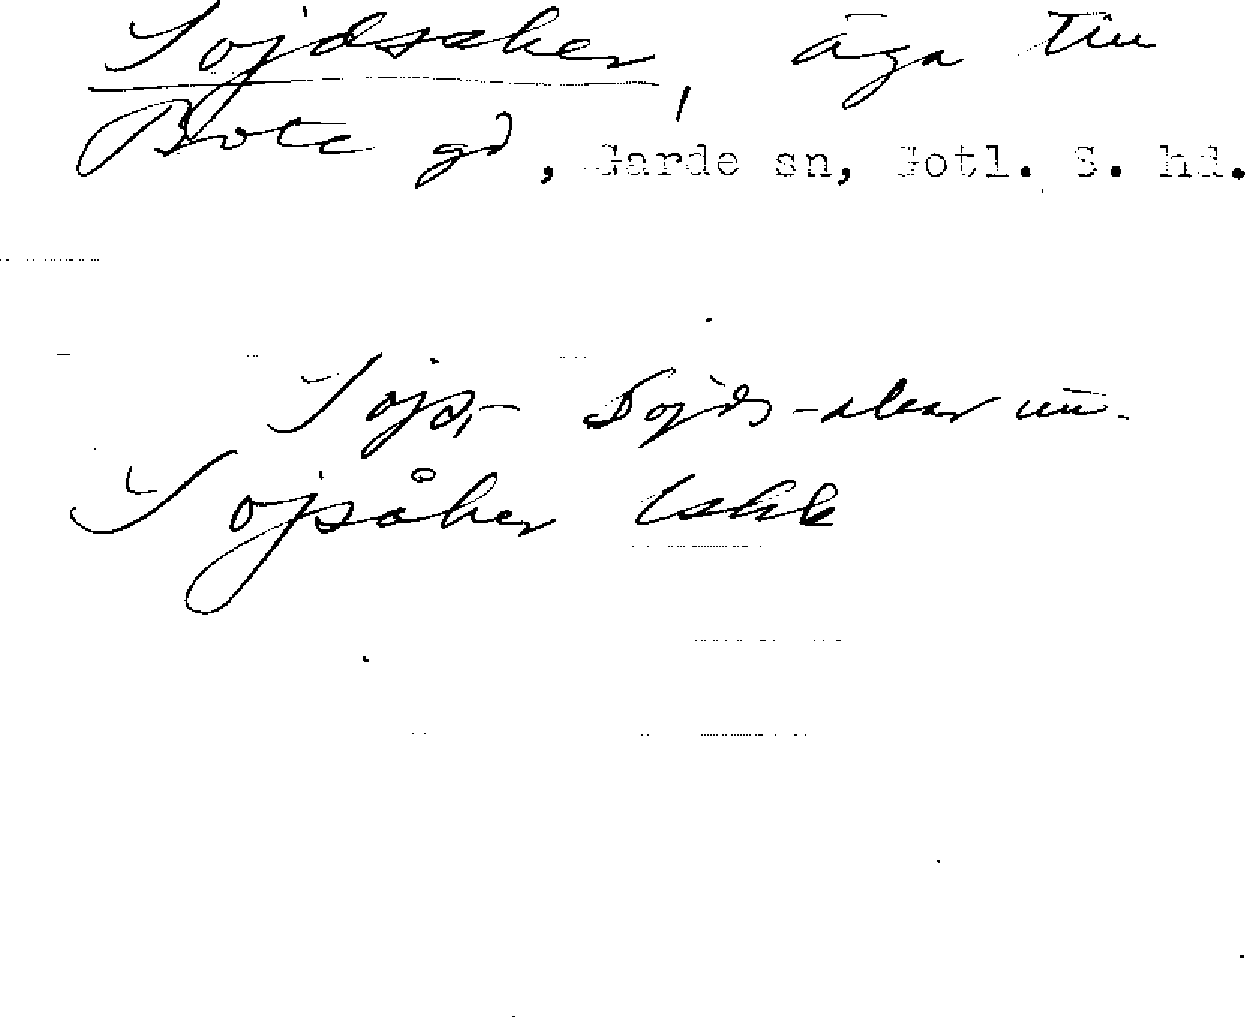 Sojdsaker, äga till
Bote gd, Garde sn, Gotl. S. hd.
Sojs,- Sojds-akar un.
Sojsåker